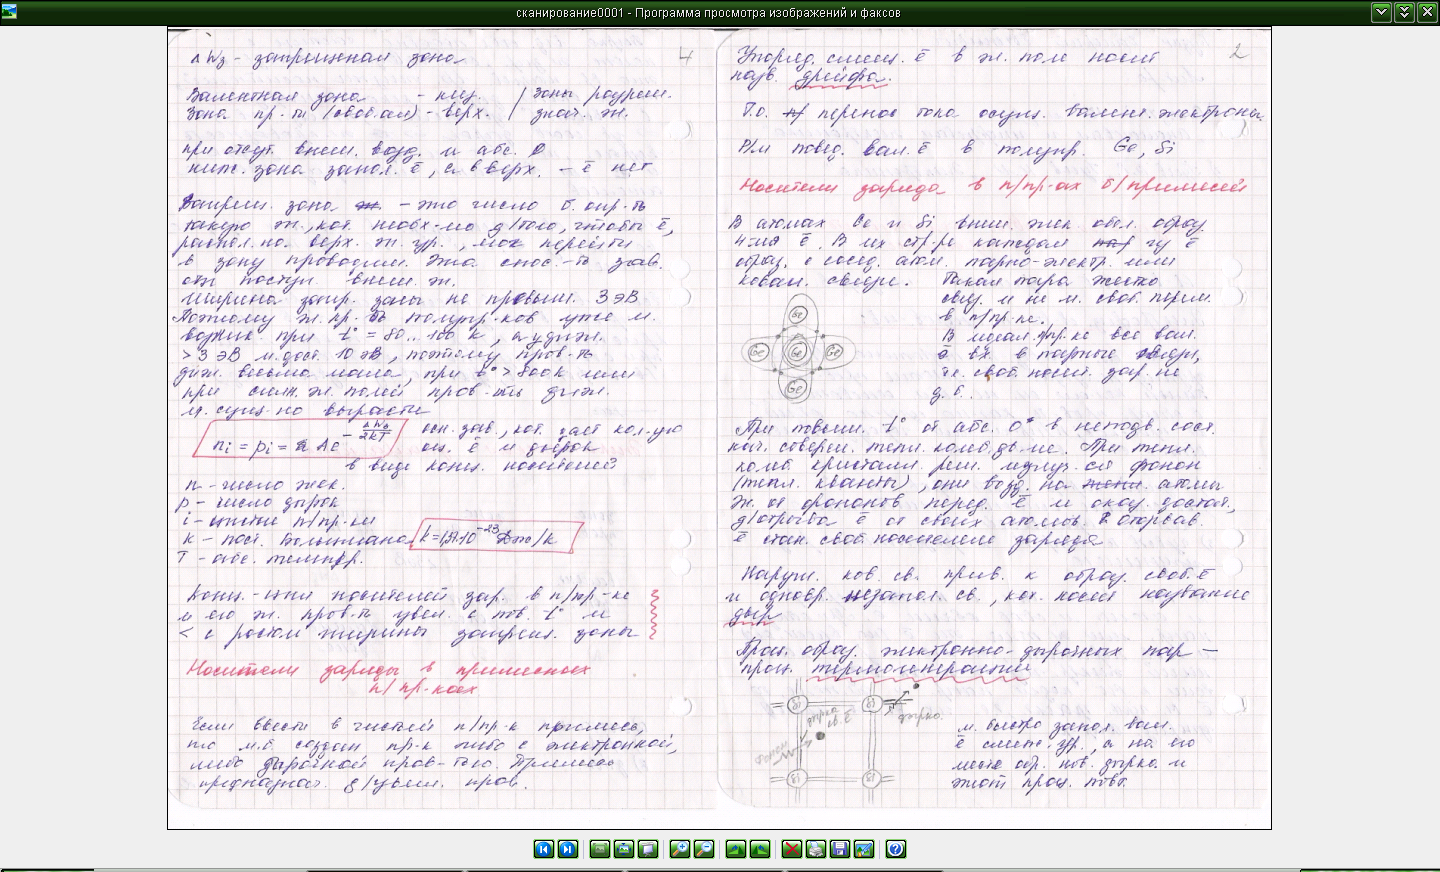 сканирование0001 - Программа просмотра изображений и факсов
Δ W₃ - запрещенная зона
4
Валентная зона - низ. / Зоны разреш.
Зона пр-ти (свобод) - верх. / знач. эн.
при отсут. внеш. возд. и абс. 0
ниж. зона запол. ē, а в верх. - ē нет
Запрещ. зона - это число б. опр-ть
такую эн., кот. необх-мо д/того, чтобы ē,
распол. на верх. эн. ур., мог перейти
в зону проводим. Эта спос.-ть зав.
от поступ. внеш. эн.
Ширина запр. зоны не превыш. 3 эВ
Поэтому эл. пр-ть полупр-ков уже м.
возник. при t° = 80... 100 К, а у диэл.
> 3 эВ м. дост. 10 эВ, поэтому пров-ть
диэл. весьма мала, при t° > 800К или
при сильн. эл. полей пров-ть диэл.
м. сущ-но вырасти
nᵢ = pᵢ = Ae^(-ΔW₃/2kT)
осн. зав., кот. дает кол-ую
оц. ē и дырок
в виде конц. носителей
n - число элек.
p - число дырок
i - чистые п/пр-ки
k - пост. Больцмана
k = 1,38·10⁻²³ Дж/k
T - абс. темпер.
Конц.-ция носителей зар. в п/пр-ке
и его эл. пров-ть увел. с пов. t° и
< с ростом ширины запрещ. зоны
Носители заряда в примесных
п/пр-ках
Если ввести в чистый п/пр-к примесь,
то м.б. создан пр-к либо с электронной,
либо дырочной пров-тью. Примесь
предназнач. д/увел. пров.
Упоряд. смещ. ē в эл. поле носит
2
назв. дрейфа.
Т.о. перенос тока осущ. валент. электроны
Р/м повед. вал. ē в полупр. Ge, Si
Носители заряда в п/пр-ах б/примесей
В атомах Ge и Si внеш. элек. обол. образ.
4-мя ē. В их стр-ре каждая ē
образ. с сосед. атом. парно-электр. или
ковал. связи. Такая пара жестко
связ. и не м. своб. перем.
в п/пр-ке.
Ge
Ge
Ge
Ge
Ge
В идеал. п/пр-ке все вал.
ē вх. в парные связи,
т.е. своб. носит. зар. не
д.б.
При повыш. t° от абс. 0° в неподв. сост.
нач. соверш. тепл. колеб. дв-ие. При тепл.
колеб. кристалл. реш. излуч-ся фонон
(тепл. кванты), они возд. на атомы
Эн. от фононов перед. ē и оказ. достат.
д/отрыва ē от своих атомов. Оторвав.
ē стан. своб носителем заряда
Наруш. ков. св. прив. к образ. своб. ē
и одновр. незапол. св., кот. носит название
дыр
Проц. образ. электронно-дырочных пар -
проц. термогенерации
Si
Si
Si
Si
дырка
св. ē
дырка
фонон
м. быстро запол. вал.
ē смежн. ур., а на его
месте обр. нов. дырка и
этот проц. повт.